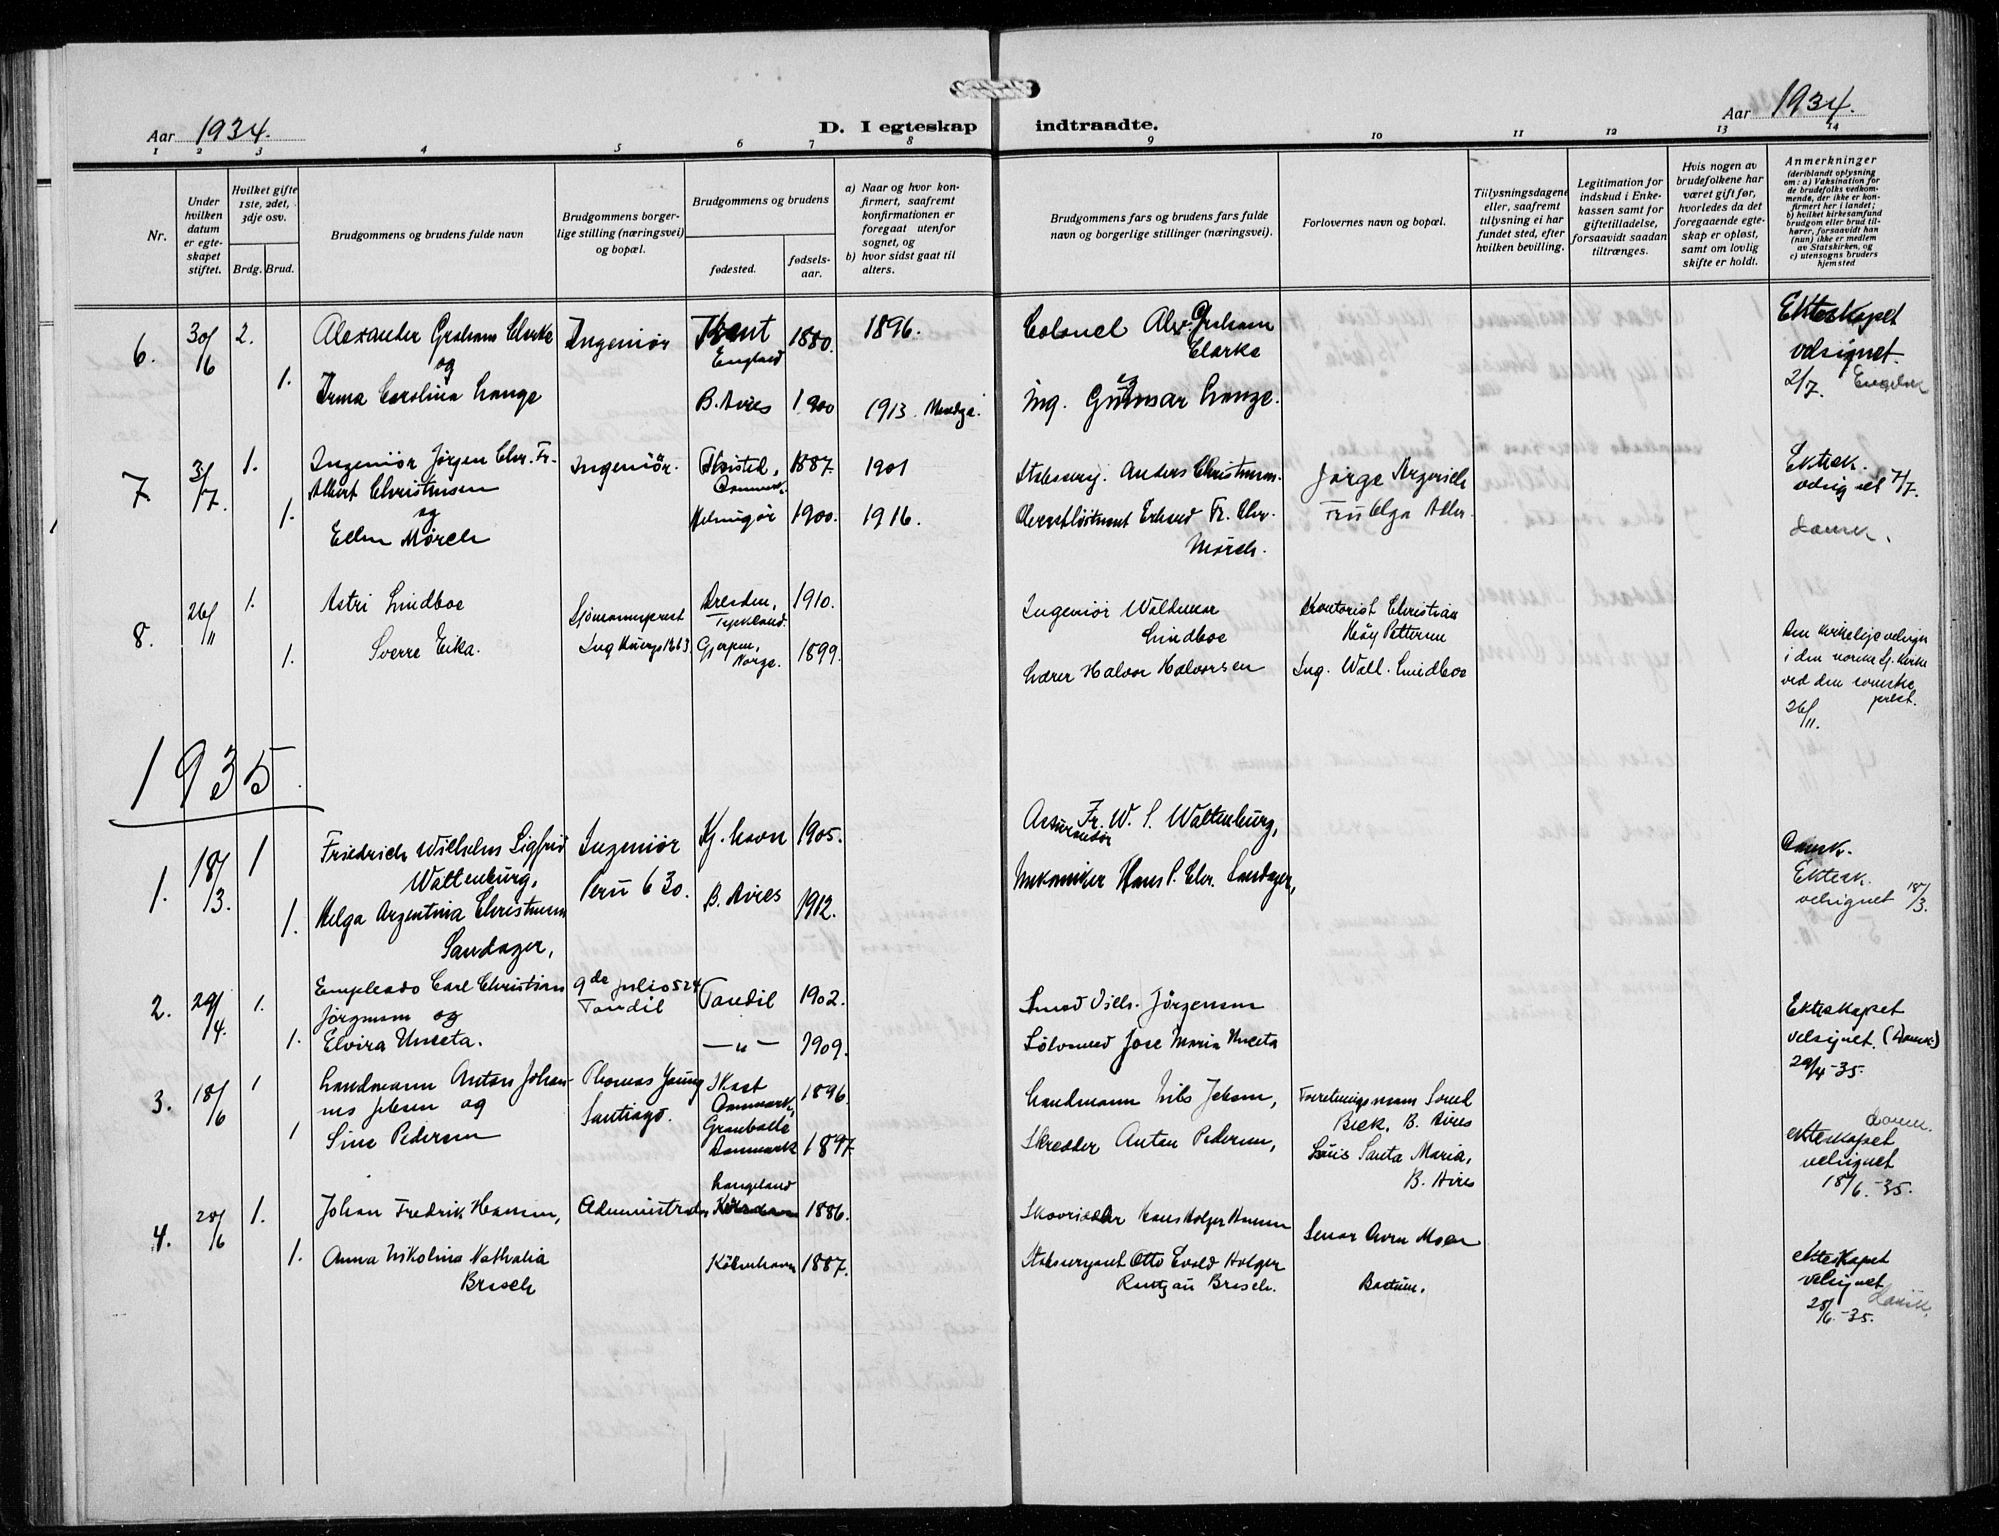 Aar 1934.
D. I egteskap indtraadte.
Aar 1934.
1 2 3 4 5 6 7 8 9 10 11 12 13 14
Nr.
Under hvilken datum er egteskapet stiftet.
Hvilket gifte 1ste, 2det, 3dje osv.
Brdg. Brud.
Brudgommens og brudens fulde navn
Brudgommens borgerlige stilling (næringsvei) og bopæl.
Brudgommens og brudens
fødested.
fødselsaar.
a) Naar og hvor konfirmert, saafremt konfirmationen er foregaat utenfor sognet, og
b) hvor sidst gaat til alters.
Brudgommens fars og brudens fars fulde navn og borgerlige stillinger (næringsvei).
Forlovernes navn og bopæl.
Tillysningsdagene eller, saafremt tillysning ei har fundet sted, efter hvilken bevilling.
Legitimation for indskud i Enkekassen samt for giftetilladelse, forsaavidt saadan tiltrænges.
Hvis nogen av brudefolkene har været gift før, hvorledes da det foregaaende egteskap er opløst, samt om lovlig skifte er holdt.
Anmerkninger
(deriblandt oplysning om: a) Vaksination for de brudefolks vedkommende, der ikke er konfirmert her i landet; b) hvilket kirkesamfund brudgom eller brud tilhører, forsaavidt han (hun) ikke er medlem av Statskirken, og c) utensogns bruders hjemsted
6. 30/6 2. Alexander Graham Clarke Ingeniör Kent England 1880. 1896. Colonel Alex. Graham Clarke
og
1. Irma Carolina Lange B. Aires 1900 1913 Ing. Gunnar Lange.
Ekteskapet velsignet 2/7. Engelsk
7. 3/7. 1. Ingeniör Jörgen Chr. Fr. Albert Christensen Ingeniör. Thisted, Danmark. 1887. 1901 Anders Christensen. Jorge
og
1. Ellen Mörch Helsingör 1900. 1916. Fr. Chr. Mörch. Fru Olga
Ektesk. velsignet 7/7.
Dansk.
8. 26/11 1. Astri Lindboe Sjömannsprest Dresden, Tyskland. 1910. Ingeniör Waldemar Lindboe Kontorist Christian Höy Pettersen
1. Sverre Eika. Ing Huergo 1263 Gjerpen, Norge. 1899. Lærer Halvor Halvorsen Ing. Wald. Lindboe
Den kirkelige velsign. i den norske Sj. kirke ved den svenske prest. 26/11.
1935.
1. 18/3. 1 Friedrich Wilhelm Sigfrid Waltenburg, Ingeniör Peru 630. Kj. havn 1905. Assurandör Fr. W. S. Waltenburg,
1. Helga Argentina Christensen Sandager, B. Aires 1912. Mekaniker Hans P. Chr. Sandager,
Dansk. Ektesk. velsignet 18/3.
2. 29/4. 1. Empleado Carl Christian Jörgensen og 9 de Julio 524 Tandil Tandil 1902. Smed Vilh. Jörgensen
1. Elvira Unceta. — " — 1909. Sölvsmed Jose Maria Unceta
Ekteskapet velsignet. (Dansk) 29/4-35.
3. 18/6 1 Landmann Anton Johannes Jebsen og Thomas Young Santiago. Skast Danmark, 1896. Landmann Nils Jebsen, Forretningsmann Svend Beck, B. Aires
1 Sine Pedersen Grauballe Danmark 1897. Skredder Anton Pedersen, Luis Santa Maria, B. Aires
Dansk. ekteskapet velsignet 18/6.-35.
4. 28/6 1. Johan Fredrik Hansen, Administrador Langeland 1886. Skovrider Hans Holger Hansen
1. Anna Nikolina Nathalia Brisch Köbenhavn 1887. Otto Evald Holger Brisch.
ekteskapet velsignet 28/6.-35. Dansk.